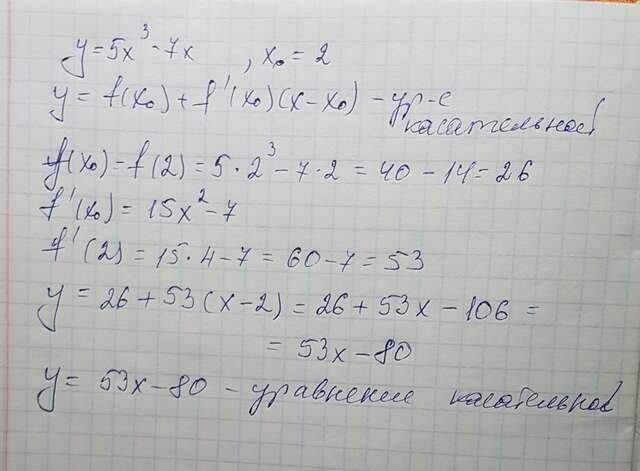 y = 5x³ - 7x , x₀ = 2
y = f(x₀) + f'(x₀)(x - x₀) - ур-е
касательной
f(x₀) = f(2) = 5 · 2³ - 7 · 2 = 40 - 14 = 26
f'(x₀) = 15x² - 7
f'(2) = 15 · 4 - 7 = 60 - 7 = 53
y = 26 + 53(x - 2) = 26 + 53x - 106 =
= 53x - 80
y = 53x - 80 - уравнение касательной